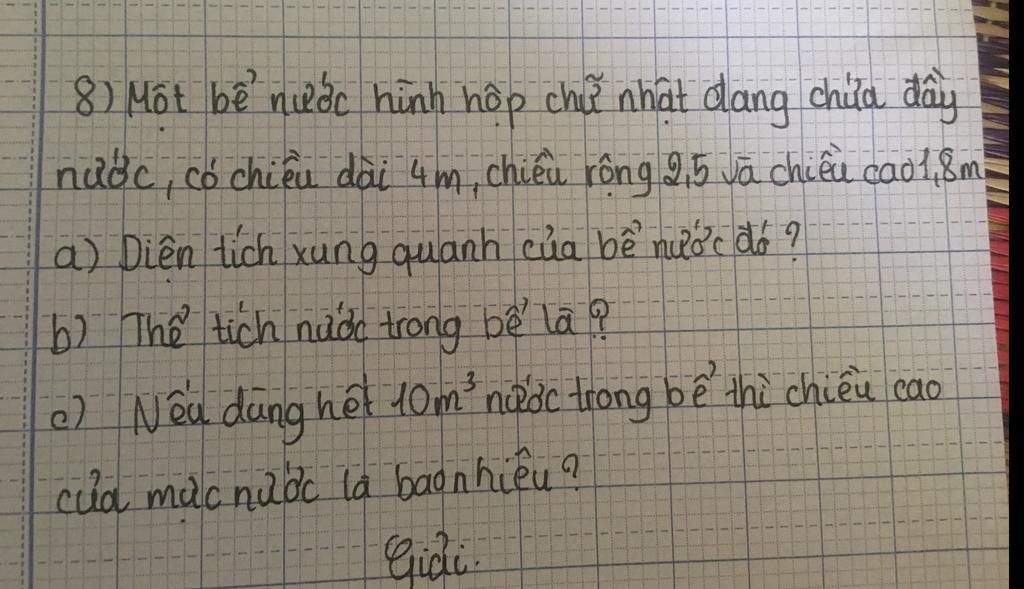 8) Một bể nước hình hộp chữ nhật đang chứa đầy
nước, có chiều dài 4m, chiều rộng 2,5 và chiều cao 1,8m
a) Diện tích xung quanh của bể nước đó?
b) Thể tích nước trong bể là?
c) Nếu dùng hết 10m³ nước trong bể thì chiều cao
của mực nước là bao nhiêu?
Giải.